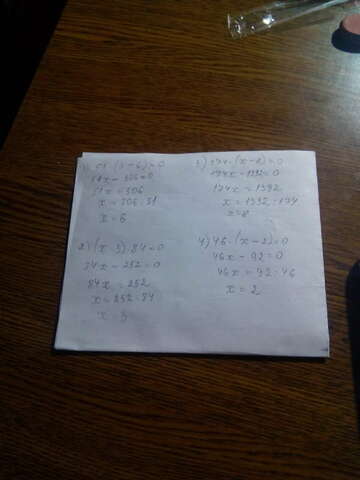 1) 51·(x-6)=0
51x-306=0
51x=306
x=306:51
x=6
2)(x-3)·84=0
84x-252=0
84x=252
x=252:84
x=3
3)174·(x-8)=0
174x-1392=0
174x=1392
x=1392:174
x=8
4)46·(x-2)=0
46x-92=0
46x=92:46
x=2